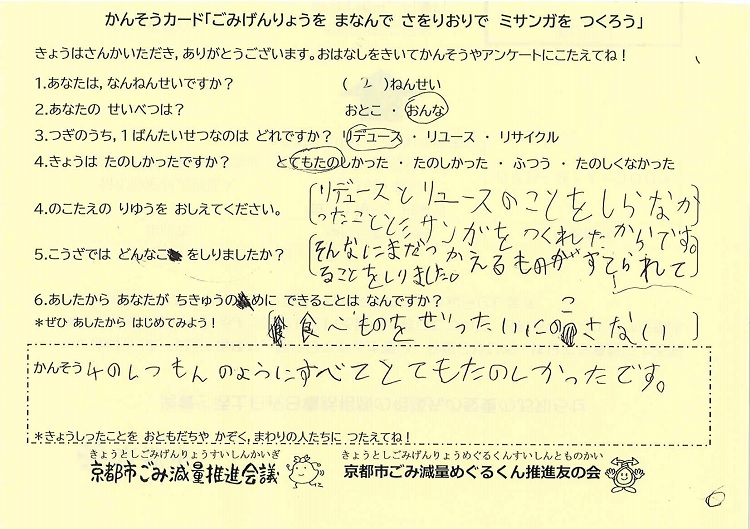 かんそうカード「ごみげんりょうを まなんで さをりおりで ミサンガを つくろう」
きょうはさんかいただき、ありがとうございます。おはなしをきいてかんそうやアンケートにこたえてね！
1.あなたは、なんねんせいですか？ ( 2 )ねんせい
2.あなたの せいべつは？ おとこ ・ おんな
3.つぎのうち、1ばんたいせつなのは どれですか？ リデュース ・ リユース ・ リサイクル
4.きょうは たのしかったですか？ とてもたのしかった ・ たのしかった ・ ふつう ・ たのしくなかった
4.のこたえの りゆうを おしえてください。
リデュースとリユースのことをしらなか
ったこととミサンガをつくれたからです。
5.こうざでは どんなこ をしりましたか？
そんなにまだつかえるものがすてられて
ることをしりました。
6.あしたから あなたが ちきゅうのために できることは なんですか？
＊ぜひ あしたから はじめてみよう！
食べものをぜったいにのこさない
かんそう 4のしつもんのようにすべてとてもたのしかったです。
＊きょうしったことを おともだちや かぞく、まわりの人たちに つたえてね！
きょうとしごみげんりょうすいしんかいぎ きょうとしごみげんりょうめぐるくんすいしんとものかい
京都市ごみ減量推進会議 京都市ごみ減量めぐるくん推進友の会
6